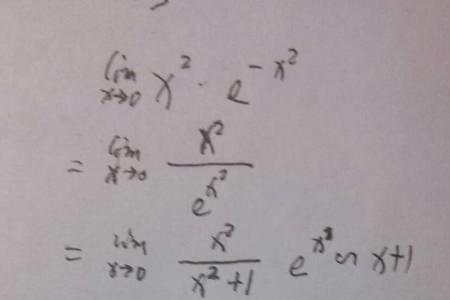 lim x→0 x² · e^(-x²)
= lim x→0 x² / e^(x²)
= lim x→0 x² / (x²+1) e^(x²) ∽ x+1